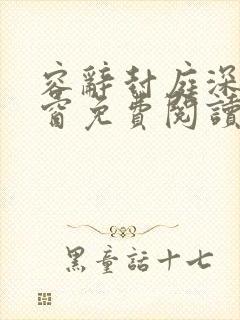 容辭封庭深
窗免費閱讀
黑童話十七